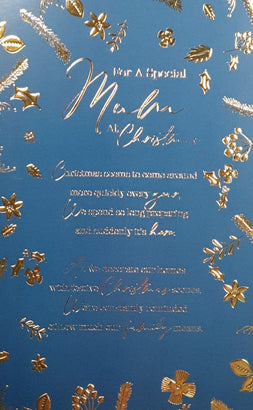 For A Special
Mum
At Christmas
Christmas seems to come around
more quickly every year,
We spend so long preparing
and suddenly it's here.
As we decorate our homes
with festive Christmas scenes,
We're constantly reminded
of how much our family means.